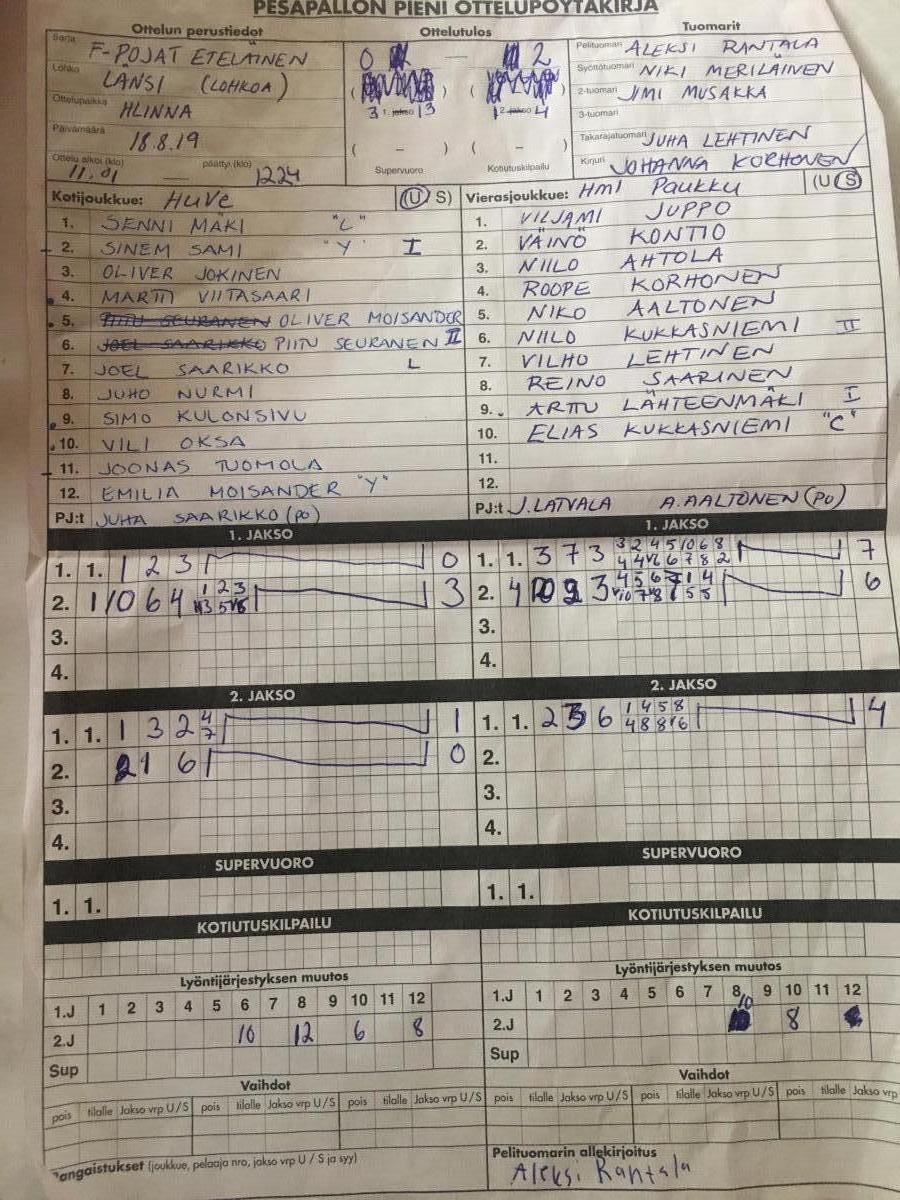 PESÄPALLON PIENI OTTELUPÖYTÄKIRJA
Ottelun perustiedot
Sarja F-POJAT ETELÄINEN
Lohko LÄNSI (LOHKO A)
Ottelupaikka HLINNA
Päivämäärä 18.8.19
Ottelu alkoi (klo) 11.01 päättyi (klo) 1224
Ottelutulos
0 — 2
3 1. jakso 13
2. jakso 4
( – ) ( – )
Supervuoro Kotiutuskilpailu
Tuomarit
Pelituomari ALEKSI RANTALA
Syöttötuomari NIKI MERILÄINEN
2-tuomari JIMI MUSAKKA
3-tuomari
Takarajatuomari JUHA LEHTINEN
Kirjuri JOHANNA KORHONEN
Kotijoukkue: HUVE (U S)
1. SENNI MÄKI "C"
2. SINEM SAMI "Y" I
3. OLIVER JOKINEN
4. MARTTI VIITASAARI
5. PIITU SEURANEN OLIVER MOISANDER
6. JOEL SAARIKKO PIITU SEURANEN II
7. JOEL SAARIKKO L
8. JUHO NURMI
9. SIMO KULONSIVU
10. VILI OKSA
11. JOONAS TUOMOLA
12. EMILIA MOISANDER "Y"
PJ:t JUHA SAARIKKO (PO)
Vierasjoukkue: HMl PAUKKU (U S)
1. VILJAMI JUPPO
2. VÄINÖ KONTIO
3. NIILO AHTOLA
4. ROOPE KORHONEN
5. NIKO AALTONEN
6. NIILO KUKKASNIEMI II
7. VILHO LEHTINEN
8. REINO SAARINEN
9. ARTTU LÄHTEENMÄKI I
10. ELIAS KUKKASNIEMI "C"
11.
12.
PJ:t J. LATVALA A. AALTONEN (PO)
1. JAKSO
1. 1. 1 2 3 0
2. 1 10 6 4 1 2 3 3
3.
4.
1. JAKSO
1. 1. 3 7 3 3 2 4 5 10 6 8 7
2. 4 3 6
3.
4.
2. JAKSO
1. 1. 1 3 2 4 7 1
2. 1 6 0
3.
4.
2. JAKSO
1. 1. 2 6 1 4 5 8 4
2.
3.
4.
SUPERVUORO
1. 1.
SUPERVUORO
1. 1.
KOTIUTUSKILPAILU
KOTIUTUSKILPAILU
Lyöntijärjestyksen muutos
1.J 1 2 3 4 5 6 7 8 9 10 11 12
2.J 10 12 6 8
Sup
Lyöntijärjestyksen muutos
1.J 1 2 3 4 5 6 7 8 9 10 11 12
2.J 10 8
Sup
Vaihdot
pois tilalle Jakso vrp U/S pois tilalle Jakso vrp U/S pois tilalle Jakso vrp U/S
Vaihdot
pois tilalle Jakso vrp U/S pois tilalle Jakso vrp U/S pois tilalle Jakso vrp
angaistukset (joukkue, pelaaja nro, jakso vrp U / S ja syy)
Pelituomarin allekirjoitus
Aleksi Rantala